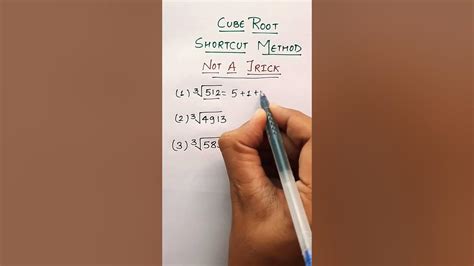 CUBE ROOT
SHORTCUT METHOD
NOT A TRICK
(1) ∛512 = 5+1+
(2) ∛4913
(3) ∛58